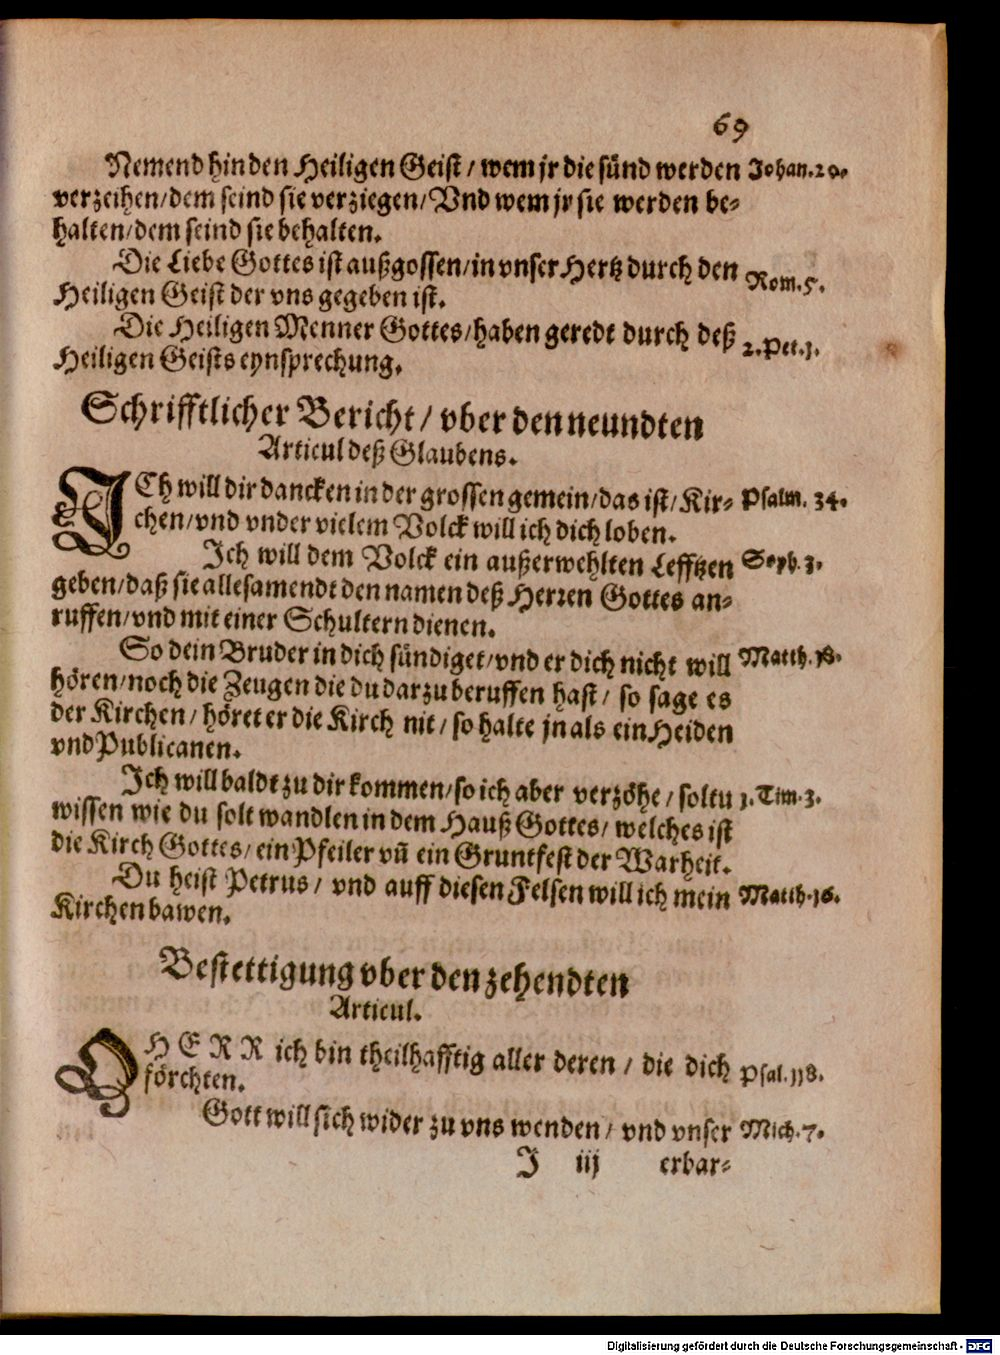 69
Nemend hin den Heiligen Geist / wem jr die sünd werden Johan. 20.
verzeihen / dem seind sie verziegen / Vnd wem jr sie werden be-
halten / dem seind sie behalten.
Die Liebe Gottes ist außgossen / in vnser Hertz durch den Rom. 5.
Heiligen Geist der vns gegeben ist.
Die Heiligen Menner Gottes / haben geredt durch deß 2. Pet. j.
Heiligen Geists eynsprechung.
Schrifftlicher Bericht / vber den neundten
Articul deß Glaubens.
JCh will dir dancken in der grossen gemein / das ist / Kir- Psalm. 34.
chen / vnd vnder vielem Volck will ich dich loben.
Ich will dem Volck ein außerwehlten Lefftzen Soph. 3.
geben / daß sie allesamendt den namen deß Herren Gottes an-
ruffen / vnd mit einer Schultern dienen.
So dein Bruder in dich sündiget / vnd er dich nicht will Matth. 18.
hören / noch die Zeugen die du darzu beruffen hast / so sage es
der Kirchen / höret er die Kirch nit / so halte jn als ein Heiden
vnd Publicanen.
Ich will baldt zu dir kommen / so ich aber verzöhe / soltu j. Tim. 3.
wissen wie du solt wandlen in dem Hauß Gottes / welches ist
die Kirch Gottes / ein Pfeiler vñ ein Gruntfest der Warheit.
Du heist Petrus / vnd auff diesen Felsen will ich mein Matth. 16.
Kirchen bawen.
Bestettigung vber den zehendten
Articul.
O HERR ich bin theilhafftig aller deren / die dich Psal. 118.
förchten.
Gott will sich wider zu vns wenden / vnd vnser Mich. 7.
J iij erbar-
Digitalisierung gefördert durch die Deutsche Forschungsgemeinschaft - DFG